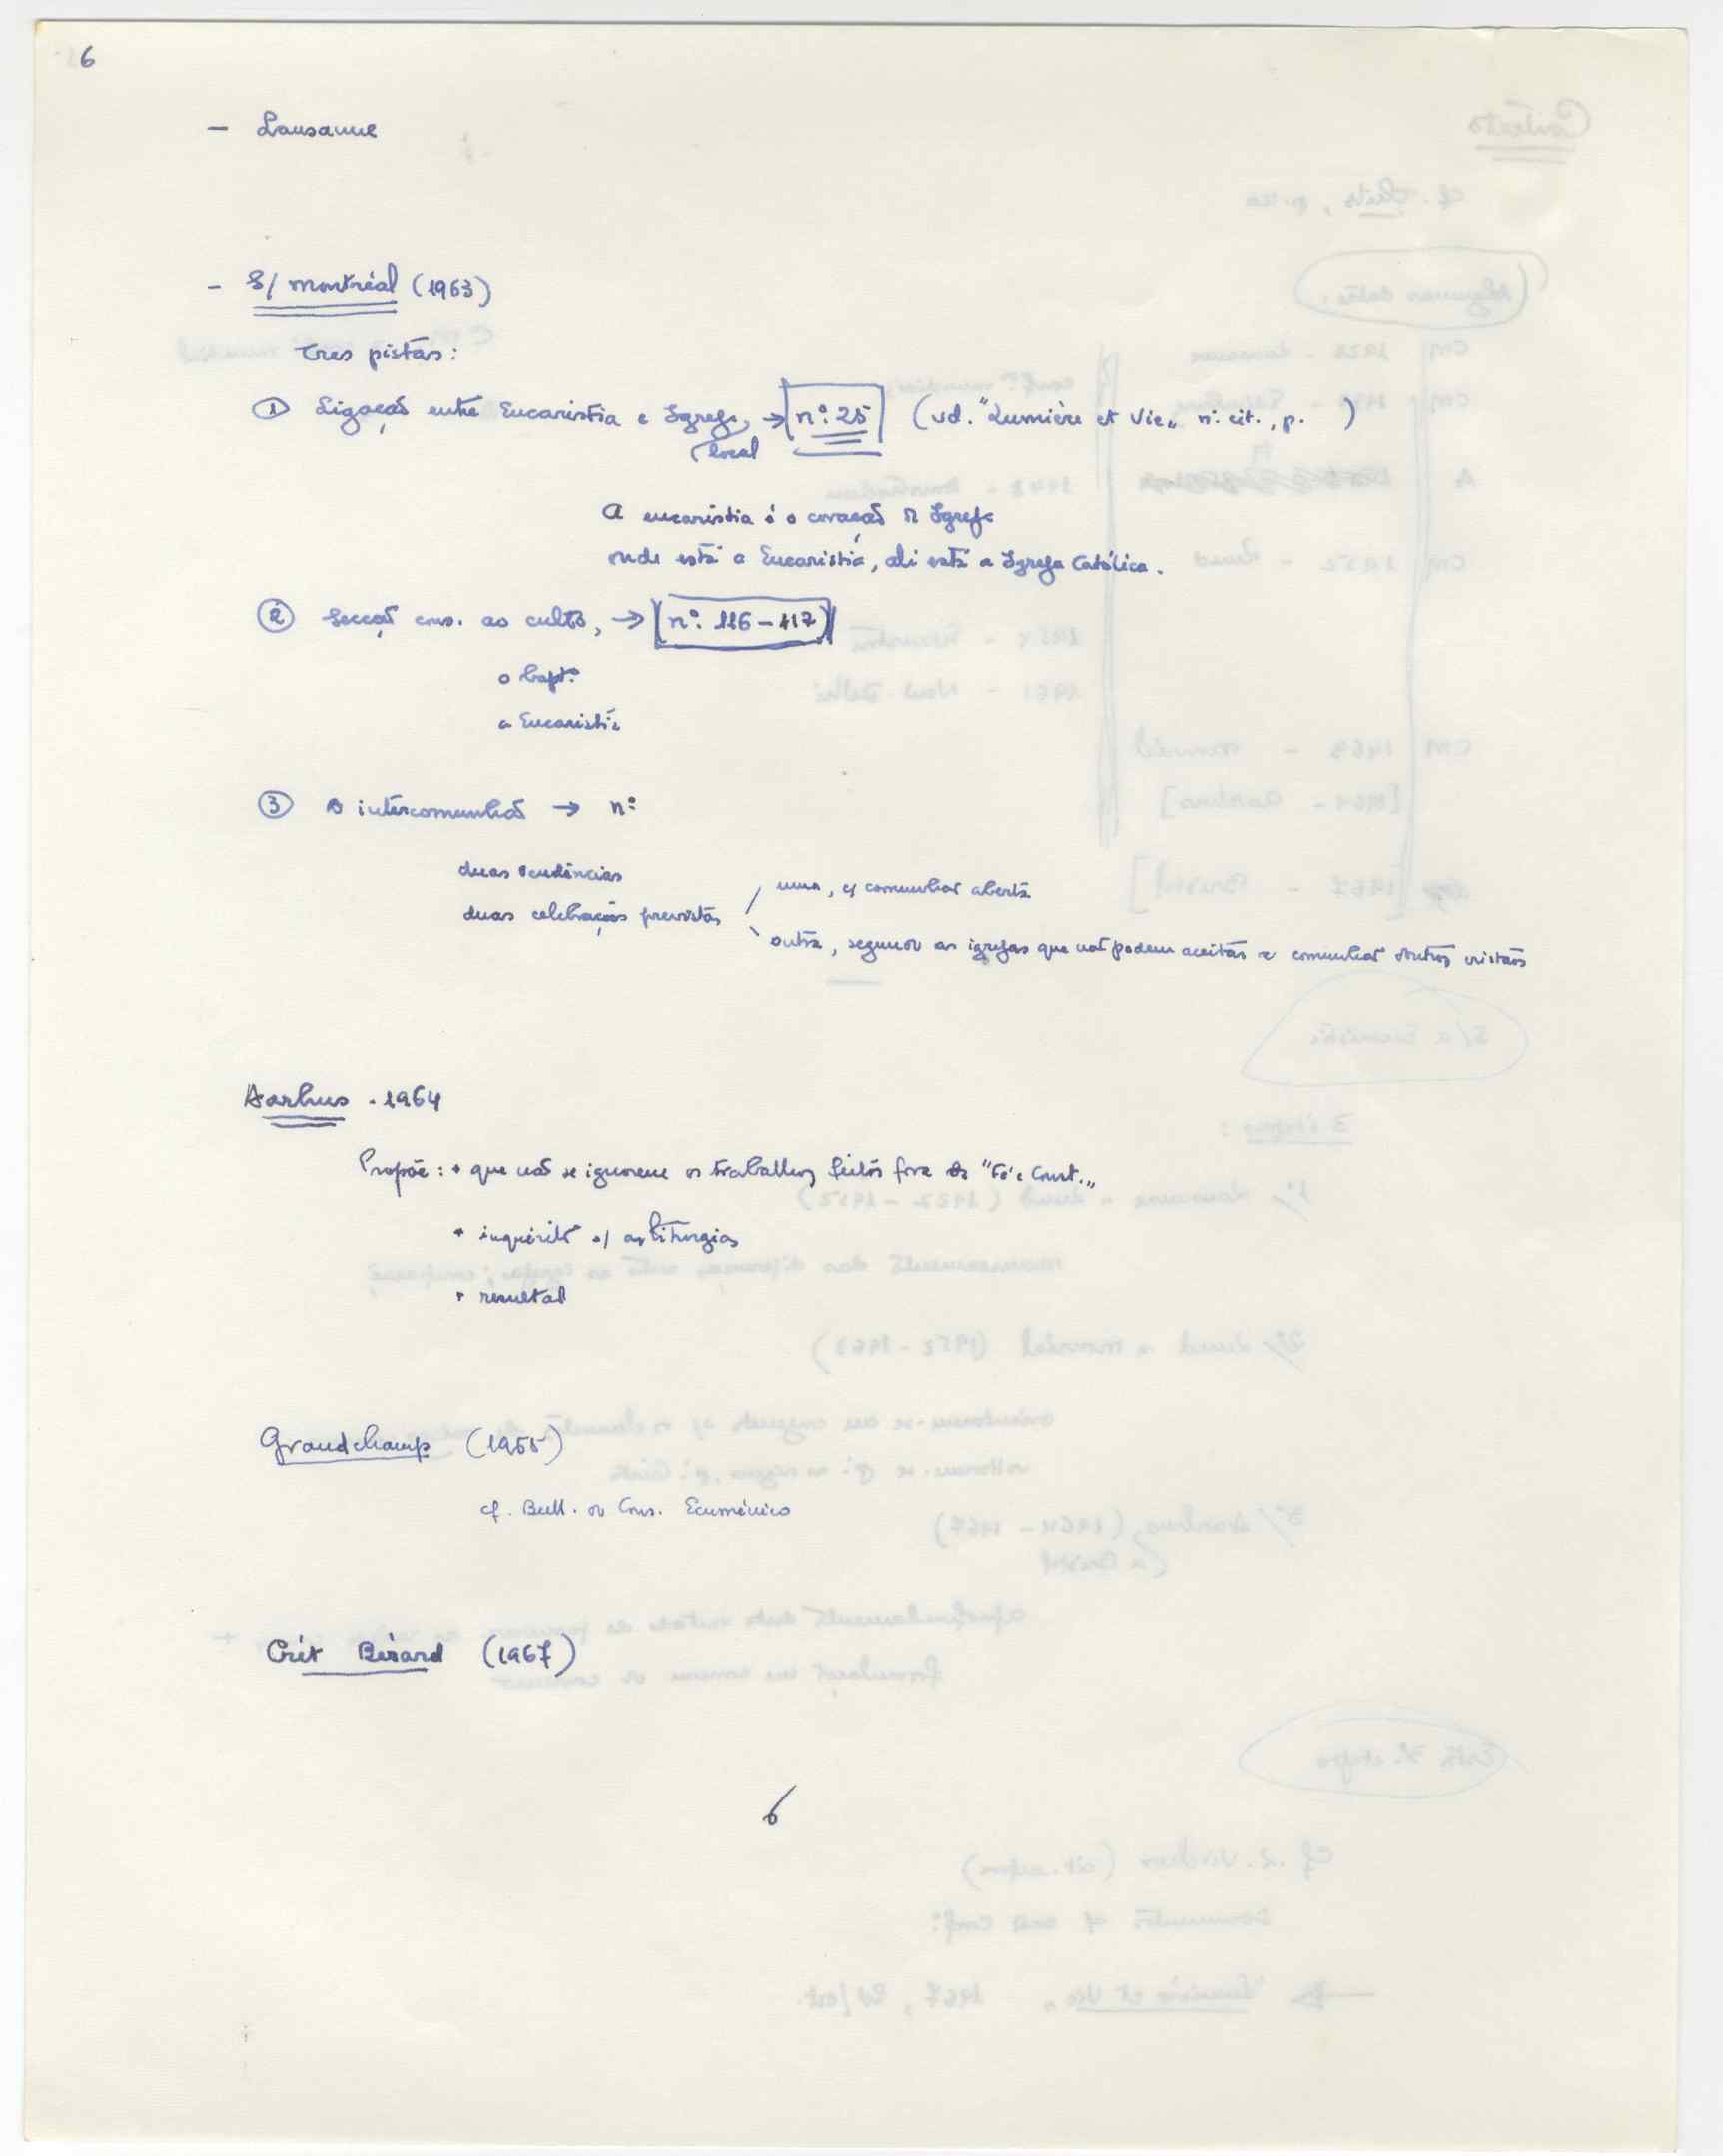 6
- Lausanne
- S/ Montréal (1963)
Tres pistas:
① Ligação entre Eucaristia e Igreja, → nº 25 (vd. "Lumière et Vie" nº cit., p. )
local
A eucaristia é o coração da Igreja
onde está a Eucaristia, ali está a Igreja Católica.
② Secção cons. ao culto, → [nº 116-117]
o bapt.º
a Eucaristia
③ A intercomunhão → nº
duas tendências
duas celebrações previstas
uma, c/ comunhão aberta
outra, segundo as igrejas que não podem aceitar a comunhão outros cristãos
Aarhus - 1964
Propõe: • que não se ignorem os trabalhos feitos fora da "Fé e Const."
• inquérito s/ as liturgias
• resultad
Grandchamp (1965)
cf. Bull. do Cons. Ecuménico
Crêt Bérard (1967)
6